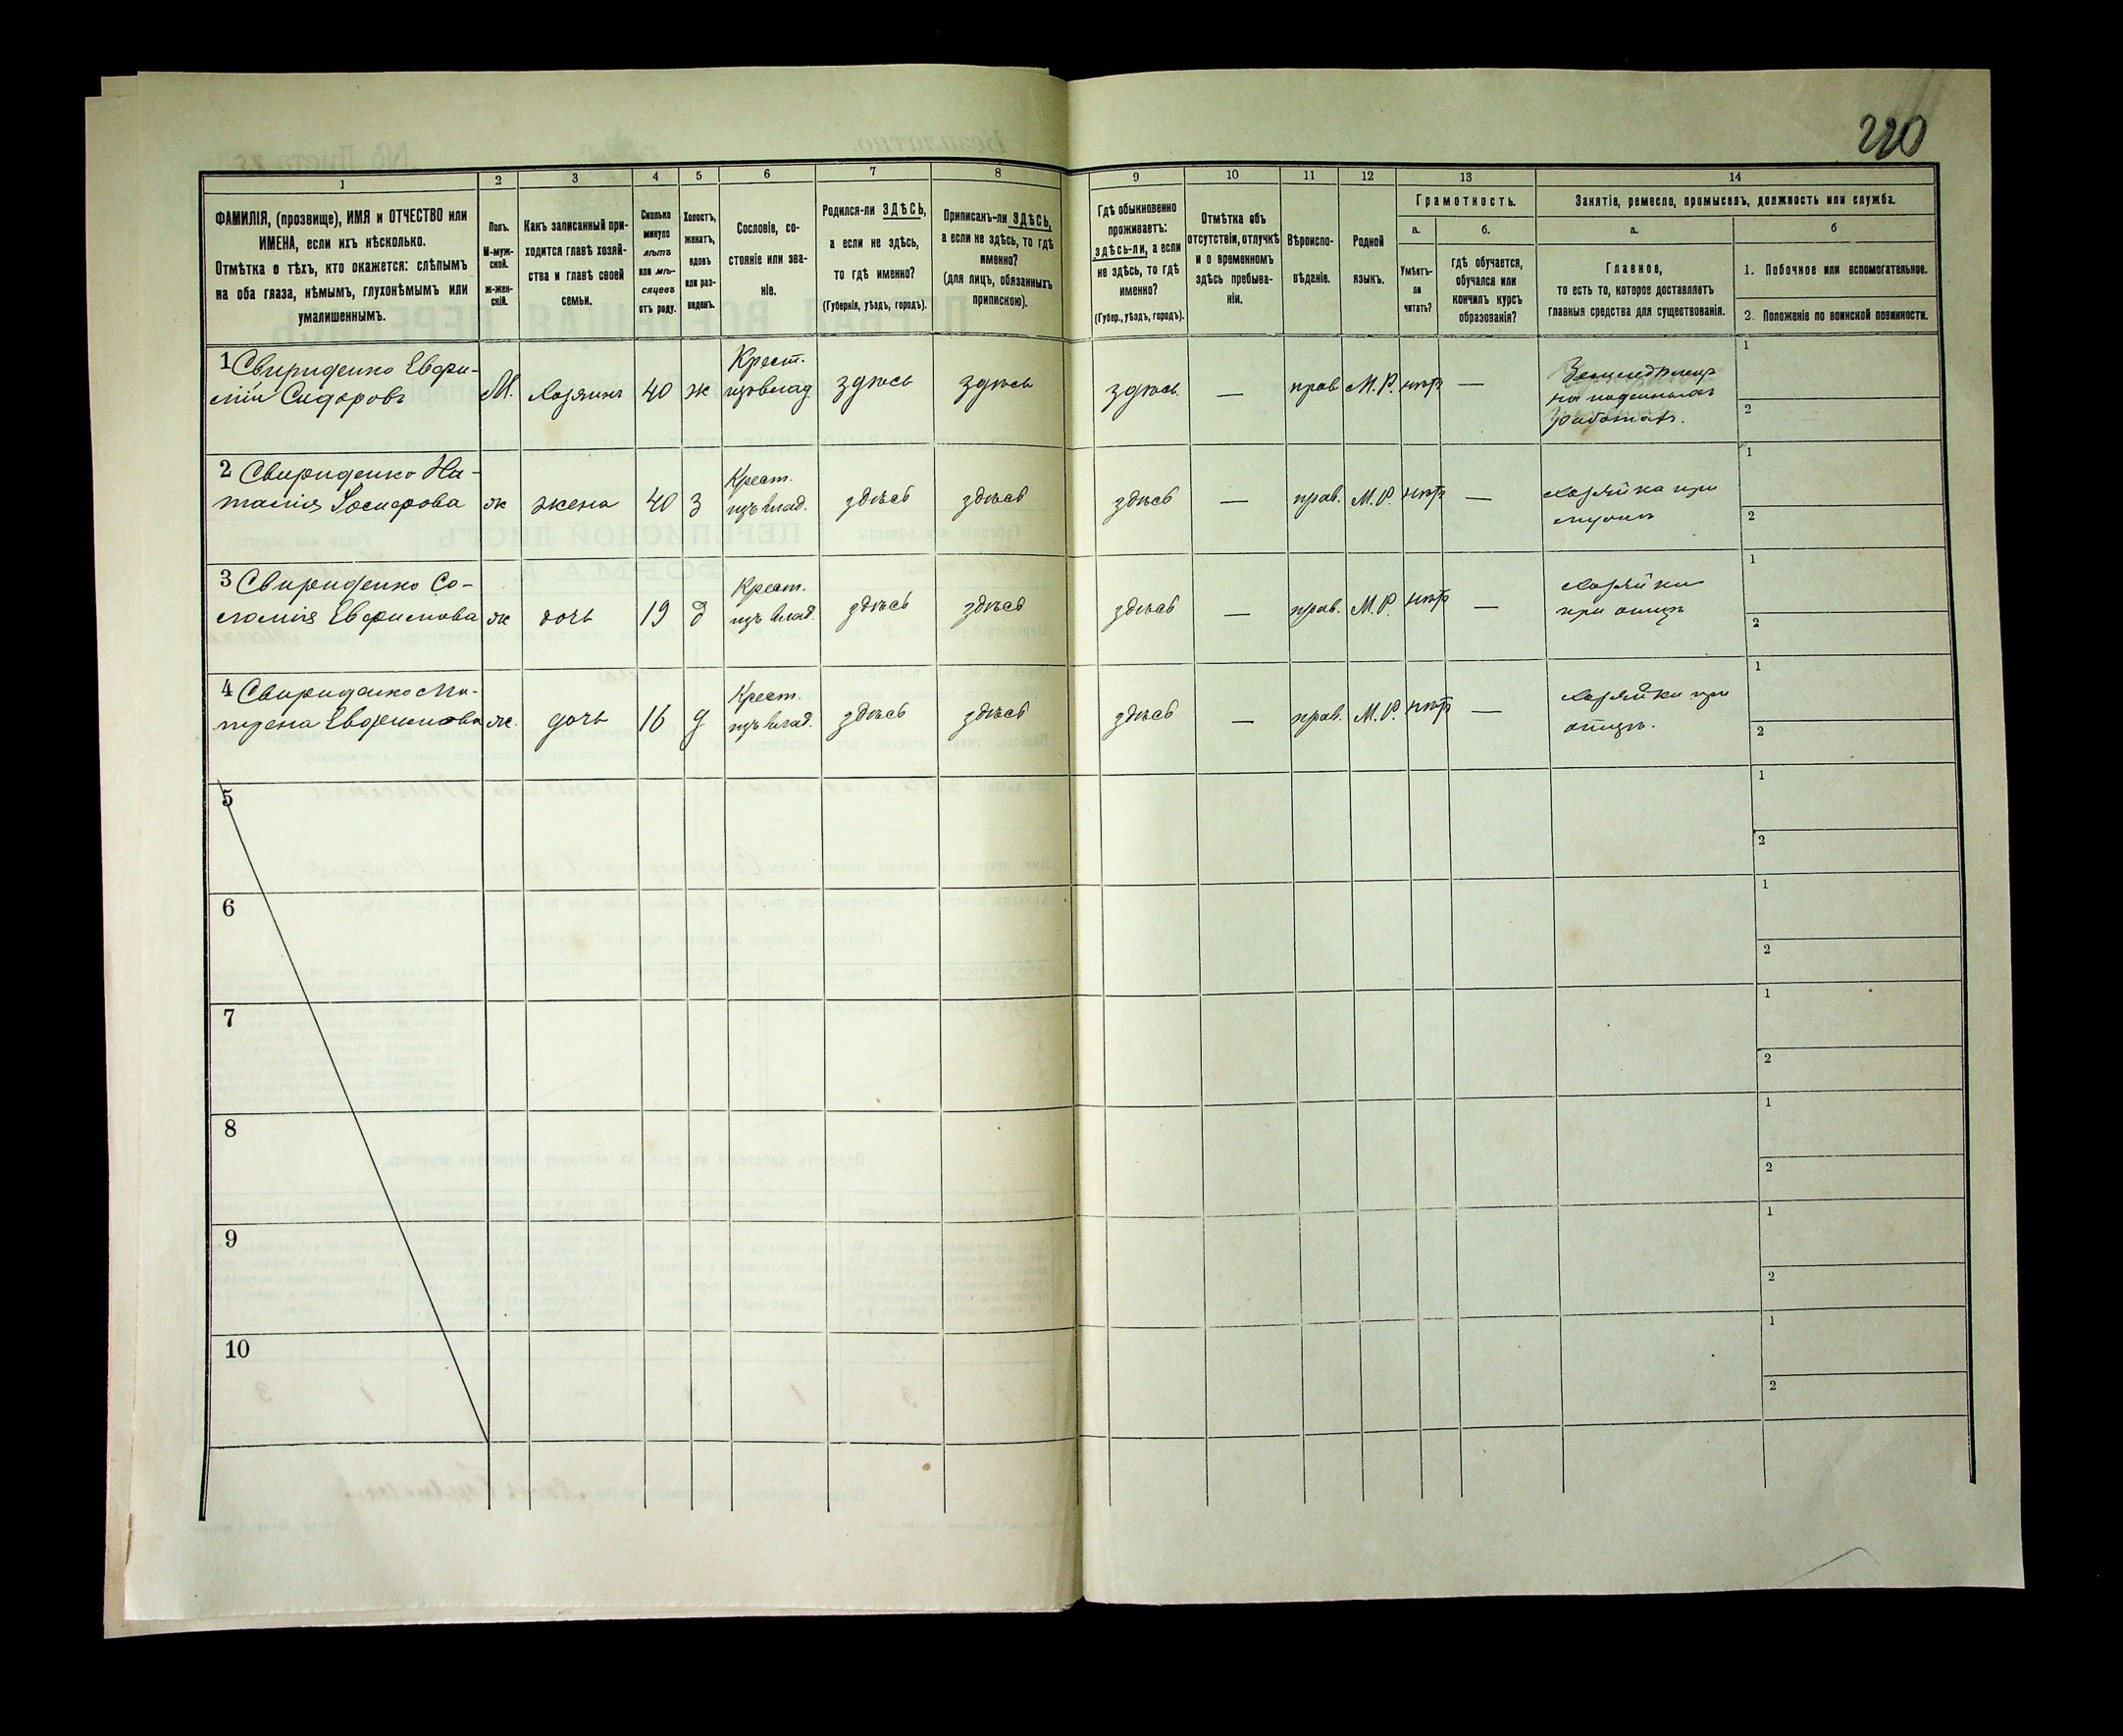 220
1 2 3 4 5 6 7 8 9 10 11 12 13 14
ФАМИЛІЯ, (прозвище), ИМЯ и ОТЧЕСТВО или
ИМЕНА, если ихъ нѣсколько.
Отмѣтка о тѣхъ, кто окажется: слѣпымъ
на оба глаза, нѣмымъ, глухонѣмымъ или
умалишеннымъ.
Полъ.
М-муж-
ской.
ж-жен-
скій.
Какъ записанный при-
ходится главѣ хозяй-
ства и главѣ своей
семьи.
Сколько
минуло
лѣтъ
или мѣ-
сяцевъ
отъ роду.
Холостъ,
женатъ,
вдовъ
или раз-
веденъ.
Сословіе, со-
стояніе или зва-
ніе.
Родился-ли ЗДѢСЬ,
а если не здѣсь,
то гдѣ именно?
(Губернія, уѣздъ, городъ).
Приписанъ-ли ЗДѢСЬ,
а если не здѣсь, то гдѣ
именно?
(для лицъ, обязанныхъ
припискою).
Гдѣ обыкновенно
проживаетъ:
здѣсь-ли, а если
не здѣсь, то гдѣ
именно?
(Губер., уѣздъ, городъ).
Отмѣтка объ
отсутствіи, отлучкѣ
и о временномъ
здѣсь пребыва-
ніи.
Вѣроиспо-
вѣданіе.
Родной
языкъ.
Грамотность.
а.
Умѣетъ-
ли
читать?
б.
гдѣ обучается,
обучался или
кончилъ курсъ
образованія?
Занятіе, ремесло, промыселъ, должность или служба.
а.
Главное,
то есть то, которое доставляетъ
главныя средства для существованія.
б
1. Побочное или вспомогательное.
2. Положеніе по воинской повинности.
1 Свириденко Евфи-
мій Сидоровъ
М.
хозяинъ
40
ж
Крест.
изъ влад.
здѣсь
здѣсь
здѣсь.
—
прав
М. Р.
нѣтъ
—
на поденныхъ
работахъ.
1
2
2 Свириденко На-
талія
ж
жена
40
з
Крест.
изъ влад.
здѣсь
здѣсь
здѣсь
—
прав.
М. Р.
нѣтъ
—
хозяйка при
мужѣ
1
2
3 Свириденко Со-
ломія Евфимова
ж
дочь
19
д
Крест.
изъ влад.
здѣсь
здѣсь
здѣсь
—
прав.
М. Р.
нѣтъ
—
при отцѣ
1
2
4 Свириденко Ма-
трена Евфимова
ж.
дочь
16
д
Крест.
изъ влад.
здѣсь
здѣсь
здѣсь
—
прав.
М. Р.
нѣтъ
—
при
отцѣ.
1
2
5
1
2
6
1
2
7
1
2
8
1
2
9
1
2
10
1
2